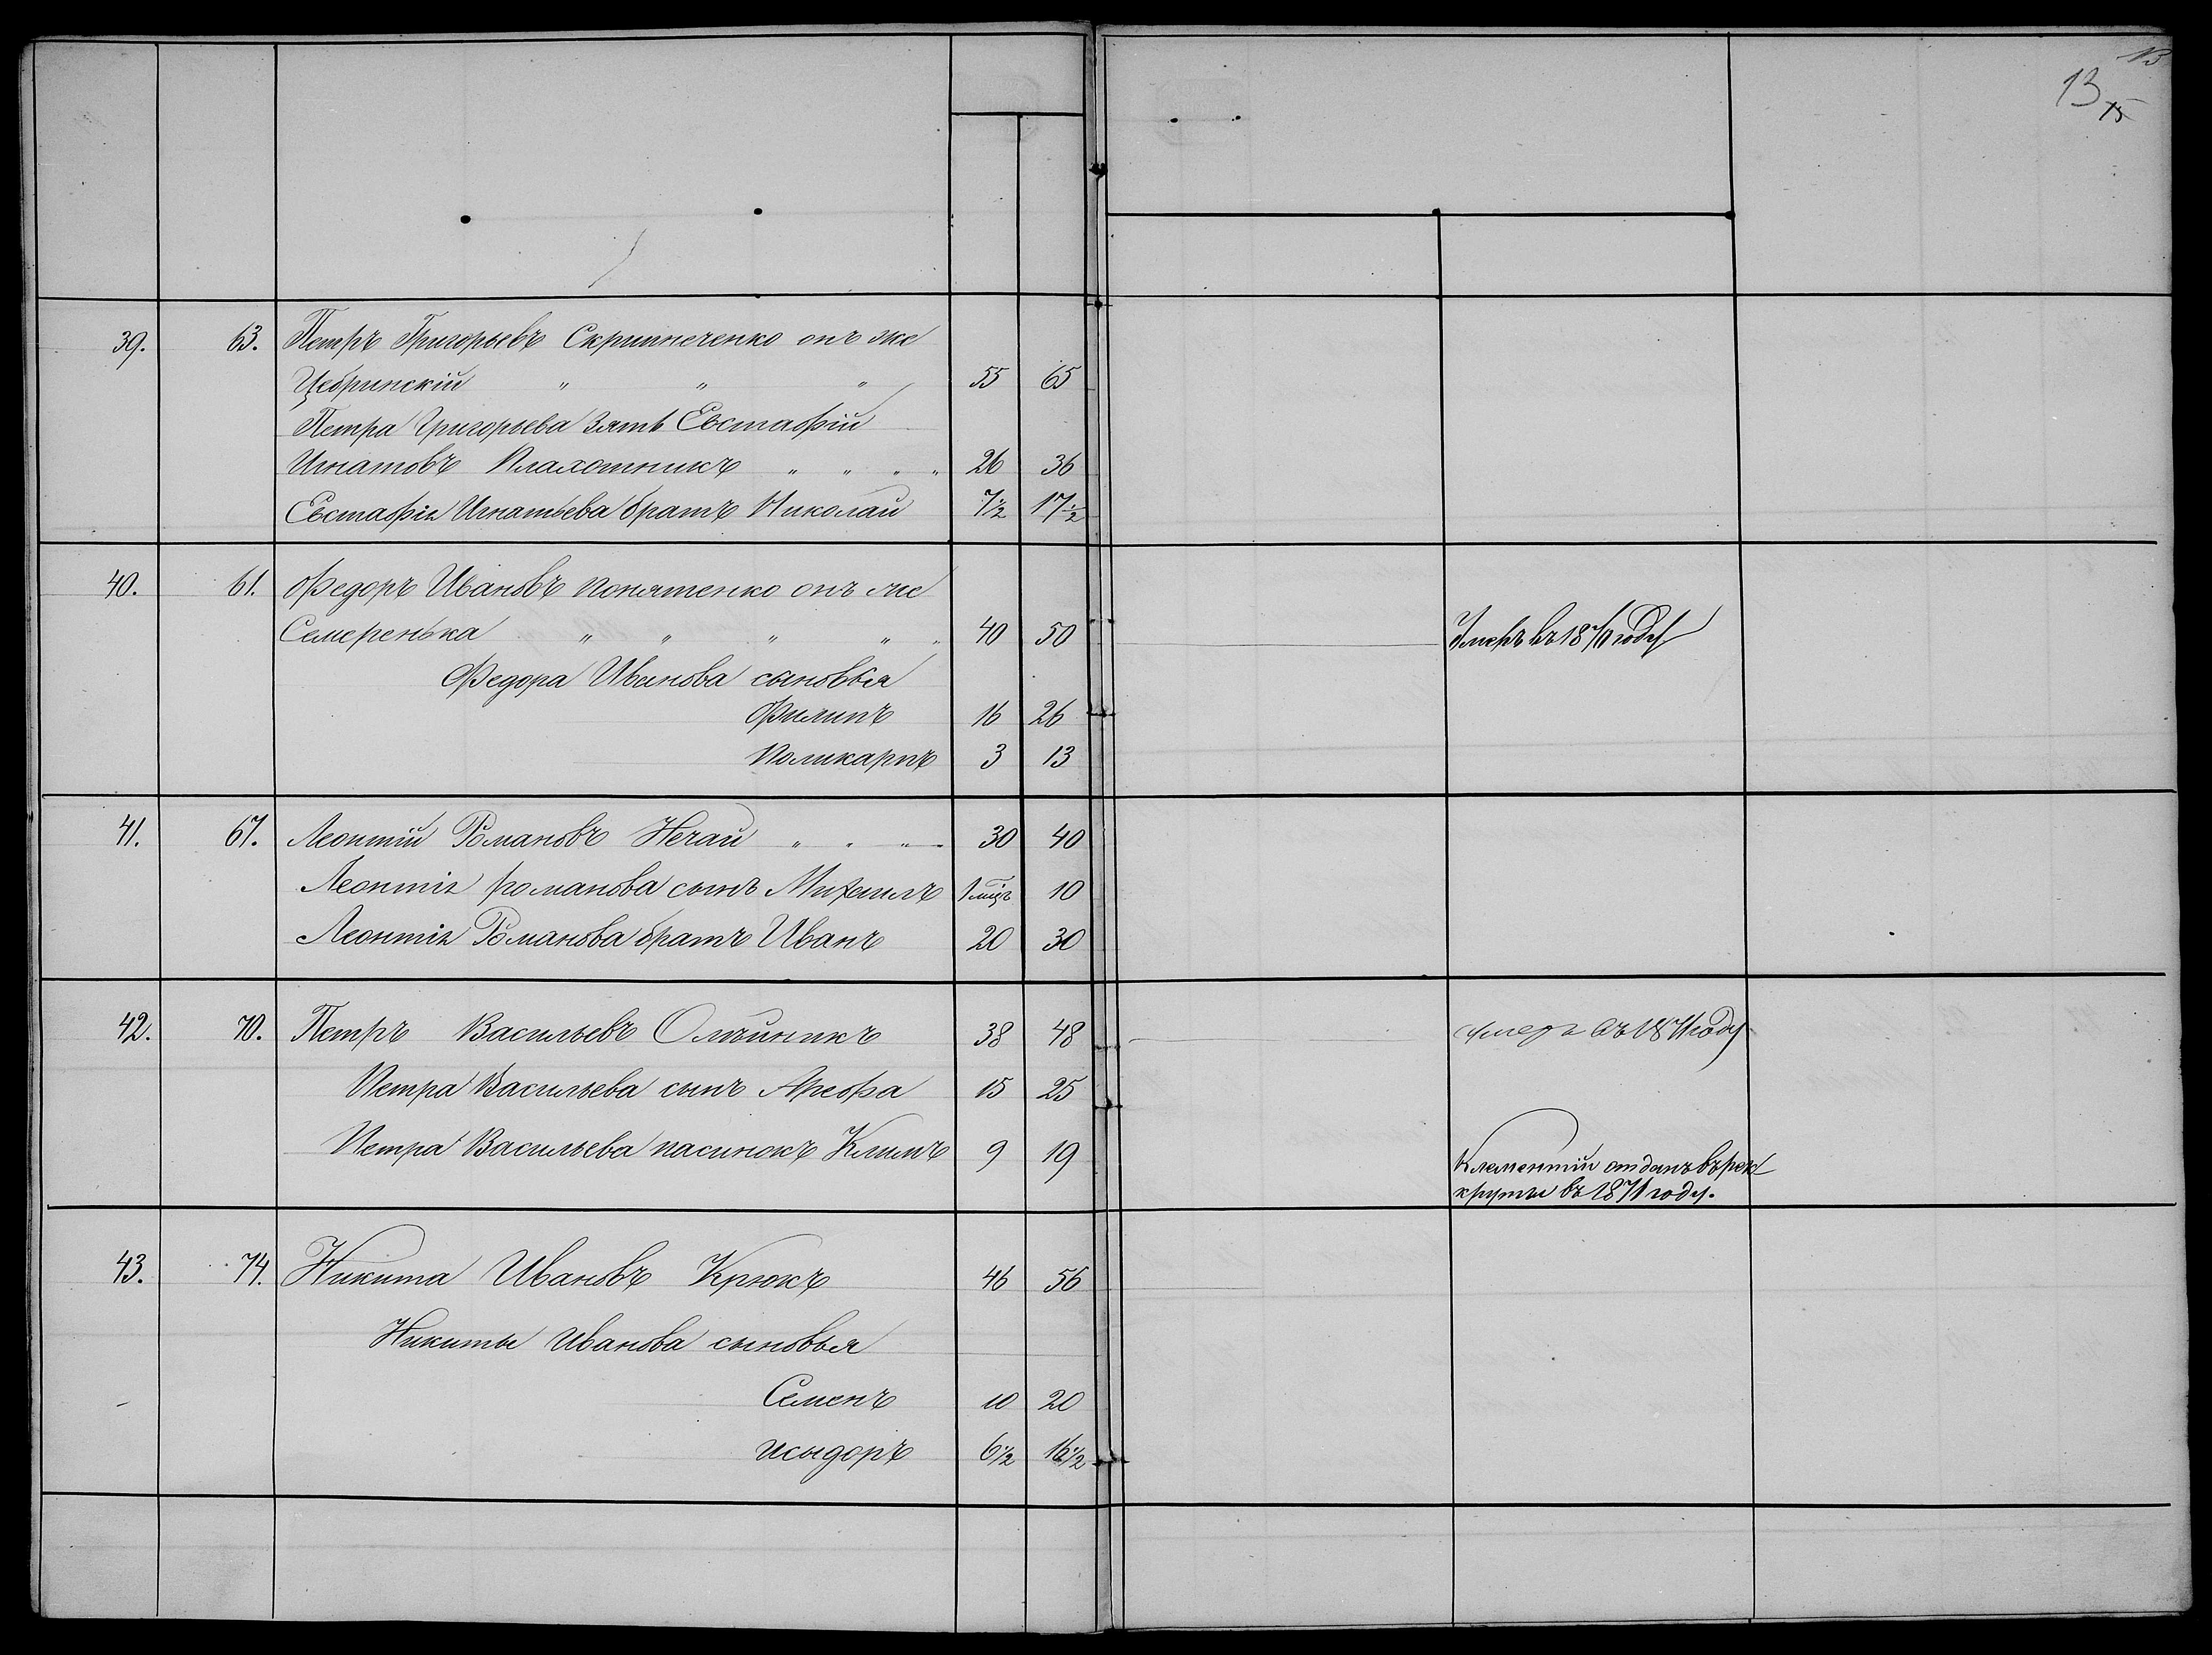 13
13 15
39. 63. Петръ Григорьевъ Скрипниченко онъ же
Цебринскій " " " 55 65
Петра Григорьева зять Евстафій
Игнатовъ Плахотникъ " " " " 26 36
Евстафія Игнатьева братъ Николай 7½ 17½
40. 61. Федоръ Ивановъ Понятенко онъ же
Семеренька " " " " " 40 50 Умеръ въ 1871 году
Федора Иванова сыновья
Филипъ 16 26
Поликарпъ 3 13
41. 67. Леонтій Романовъ Нечай " " " 30 40
Леонтія Романова сынъ Михаилъ 1 мѣц 10
Леонтія Романова братъ Иванъ 20 30
42. 70. Петръ Васильевъ Олѣйникъ 38 48 умеръ въ 1871 году
Петра Васильева сынъ Арефа 15 25
Петра Васильева пасинокъ Климъ 9 19 Клементій отданъ въ рек
круты въ 1871 году.
43. 74. Никита Ивановъ Крюкъ 46 56
Никиты Иванова сыновья
Семенъ 10 20
Исыдоръ 6½ 16½